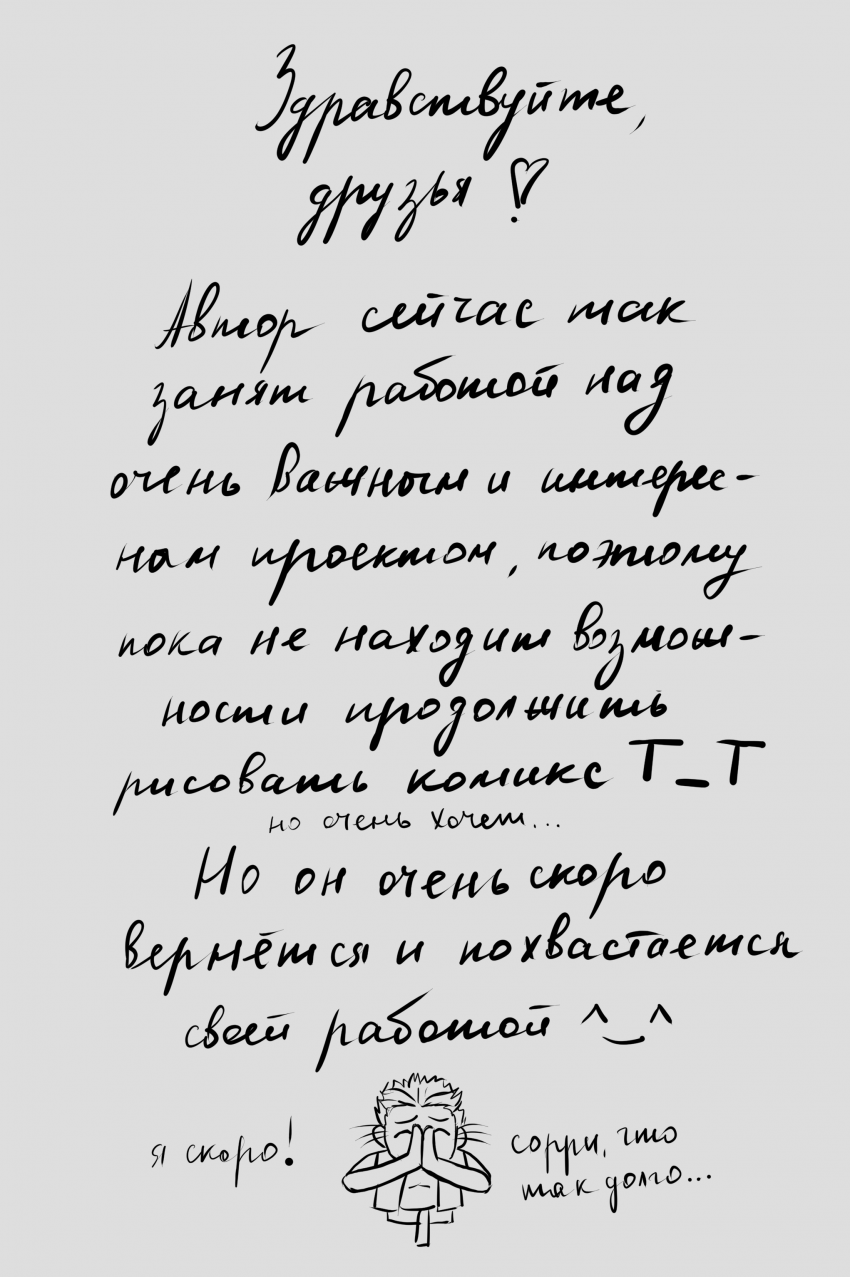 Здравствуйте,
друзья!
Автор сейчас так
занят работой над
очень важным и интерес-
нам проектом, поэтому
пока не находит возмож-
ности продолжить
рисовать комикс T_T
но очень хочет...
Но он очень скоро
вернётся и похвастается
своей работой ^_^
я скоро!
сорри, что
так долго...